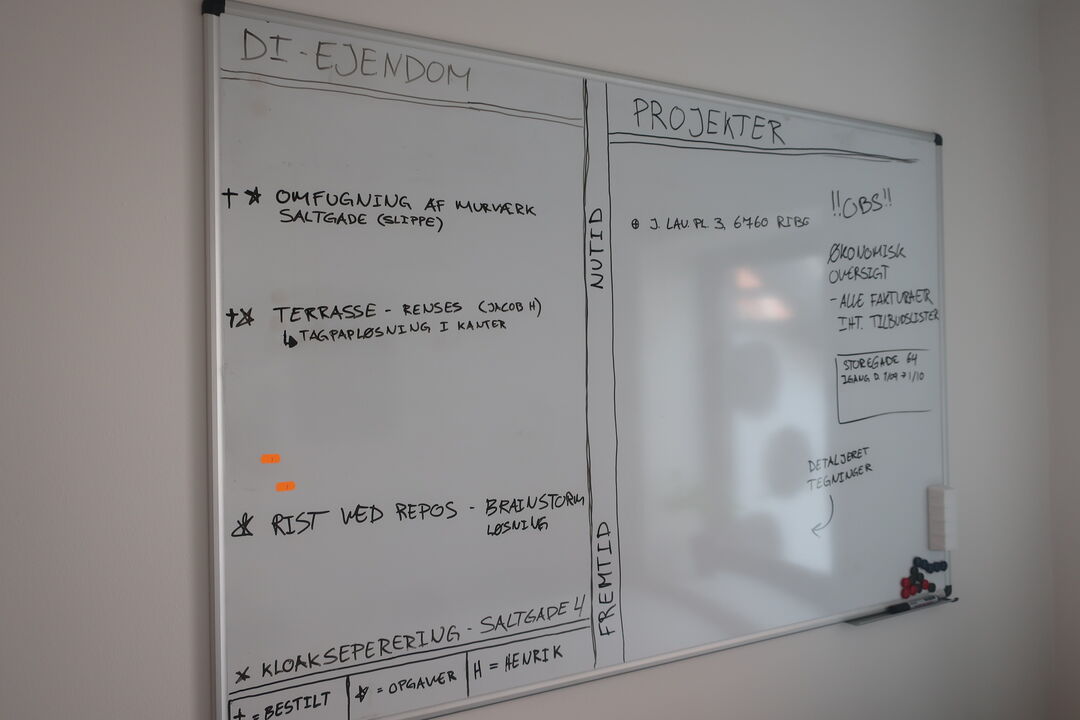 DI-EJENDOM
† ☆ OMFUGNING AF MURVÆRK
SALTGADE (SLIPPE)
† ☆ TERRASSE - RENSES (JACOB H)
↳ TAGPAPLØSNING I KANTER
☆ RIST VED REPOS - BRAINSTORM
LØSNING
☆ KLOAKSEPERERING - SALTGADE 4
† = BESTILT
☆ = OPGAVER
H = HENRIK
NUTID
FREMTID
PROJEKTER
⊕ J. LAU. PL. 3, 6760 RIBE
!!OBS!!
ØKONOMISK
OVERSIGT
- ALLE FAKTURAER
IHT. TILBUDSLISTER
STOREGADE 64
IGANG D. 1/09 → 1/10
DETALJERET
TEGNINGER